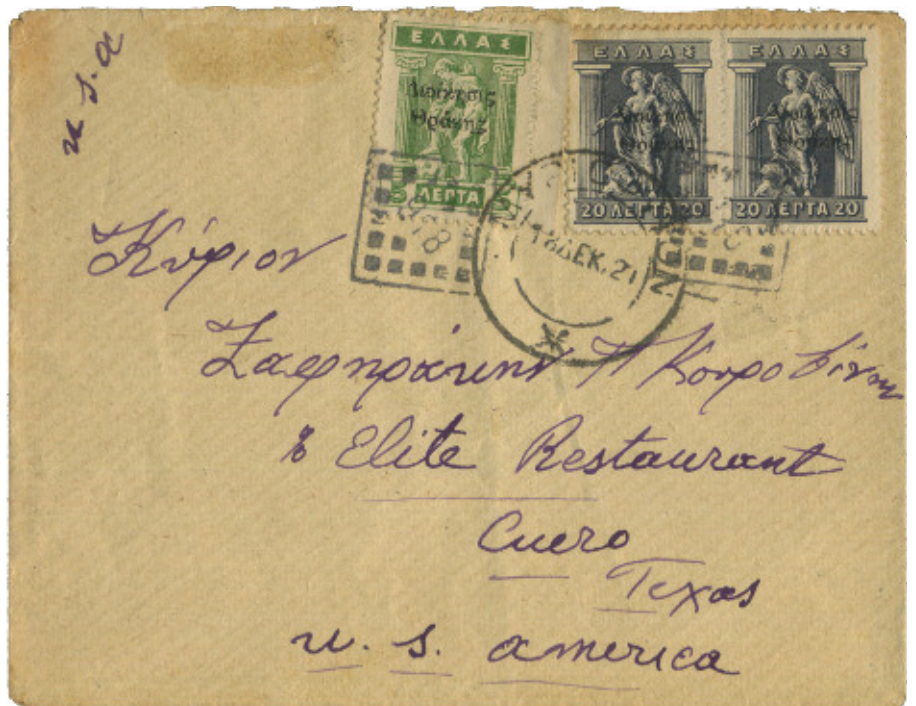 u. s. a
ΕΛΛΑΣ
Διοίκησις
Θράκης
5 ΛΕΠΤΑ 5
ΕΛΛΑΣ
20 ΛΕΠΤΑ 20
ΕΛΛΑΣ
20 ΛΕΠΤΑ 20
18
ΔΕΚ. 21
Κύριον
Ζαφηράκην Π
% Elite Restaurant
Cuero
Texas
u. s. america